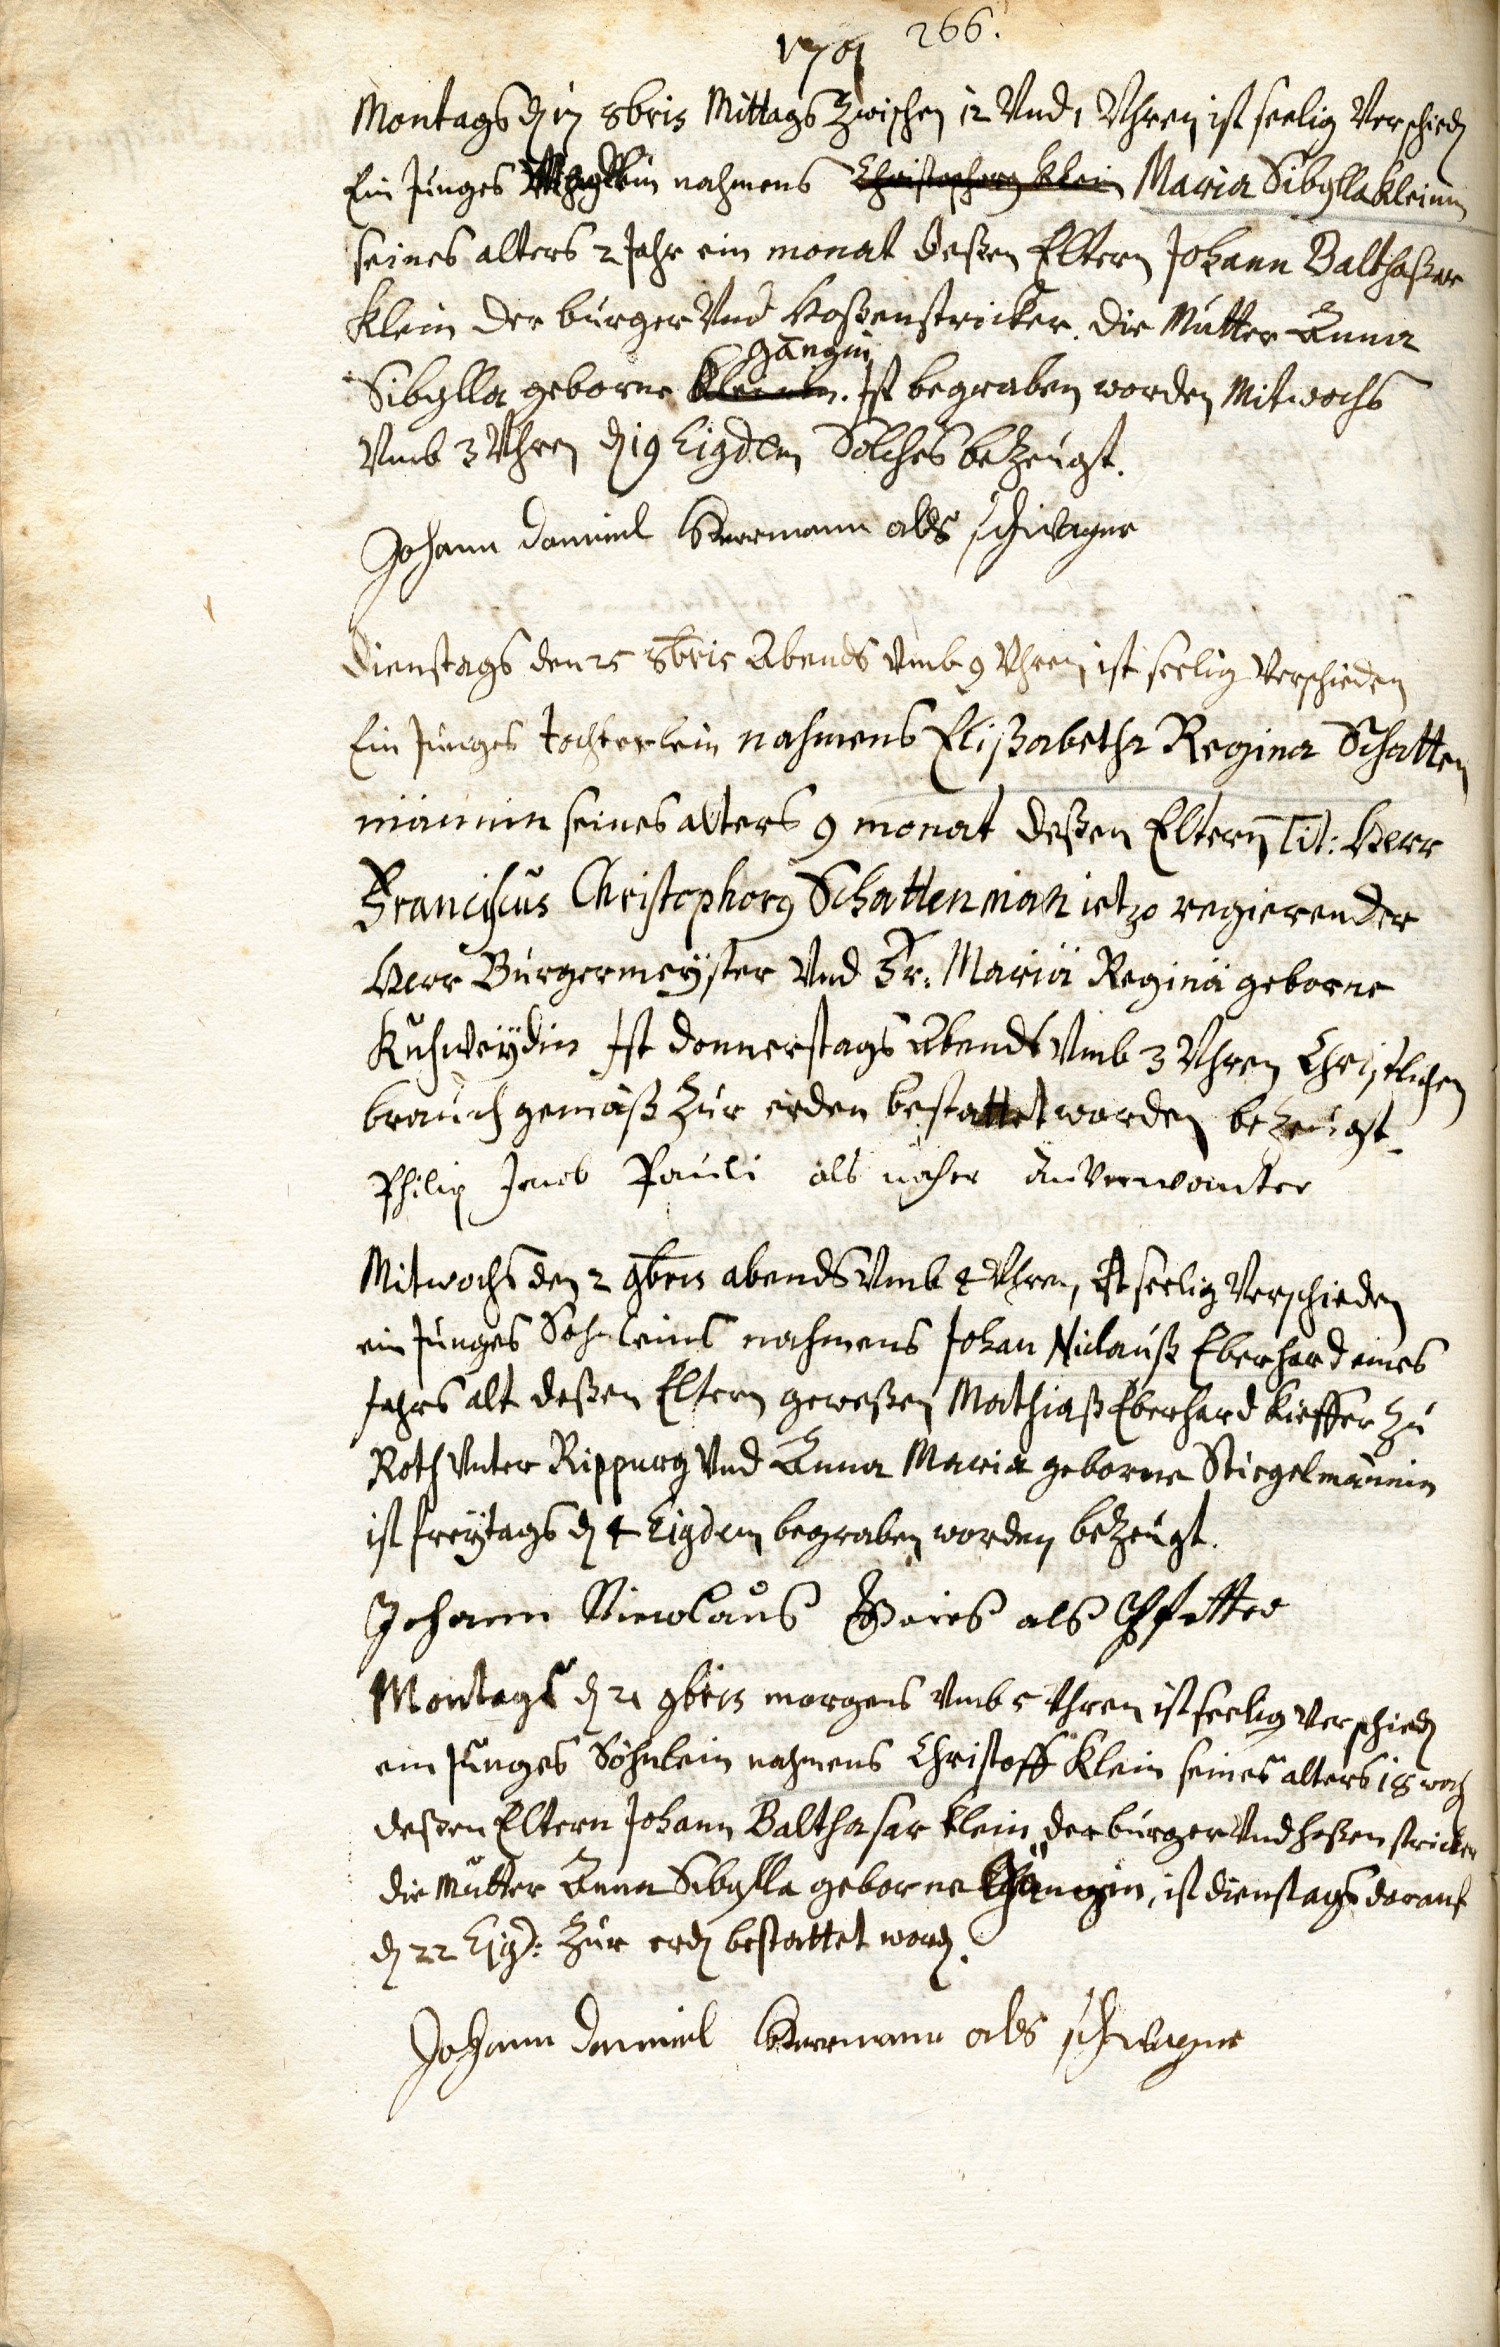 266.
1701
Montags d 17 8bris Mittags Zwischen 12 Vnd 1 Vhren ist seelig Verschied
Ein Junges Mägdlein nahmens Christophorg Klein Maria Sibylla Kleinin
seines alters 2 Jahr ein monat deßen Eltern Johann Balthaßar
Klein der burger Vnd Hoßenstricker. die Mutter Anna
gängin
Sibylla geborne Kleinin. Ist begraben worden Mitwochs
Vmb 3 Vhren d 19 Eigdem Solches beZeugt.
Johann Daniel Herrmann alds schwager
Dienstags den 25 8bris Abends Vmb 9 Vhren ist seelig Verschieden
Ein Junges Tochterlein nahmens Elißabetha Regina Schatten
männin seines alters 9 monat deßen Eltern Tit: Herr
Franciscus Christophorg Schattenman ietzo regierender
Herr Burgermeyster Vnd Fr: Mariä Reginä geborne
Kuhweydin Ist donnerstags Abends Vmb 3 Vhren Christlichem
brauch gemäß Zur erden bestattet worden beZeugt.
Philip Jacob Pauli als naher Anverwanter
Mitwochs den 2 9bris abends Vmb 4 Vhren, Ist seelig Verschieden
ein Junges Sohnleins nahmens Johan Niclauß Eberhard eines
Jahrs alt deßen Eltern geweßen Mathiaß Eberhard Kieffer Zu
Roth Vnter Rippurg Vnd Anna Maria geborne Stiegelmännin
ist freytags d 4 Eigdem begraben worden beZeugt.
Johann Nicolaus als Pfetter
Montags d 21 9bris morgens Vmb 5 Vhren ist seelig Verschied
ein Junges Söhnlein nahmens Christoff Klein seines alters 18 woch
deßen Eltern Johann Balthasar Klein der burger Vnd hoßenstricker
die Mutter Anna Sibylla geborne Gängin, ist dienstags darauf
d 22 Ejgd: Zur erd bestattet word.
Johann Daniel Herrmann alds schwager